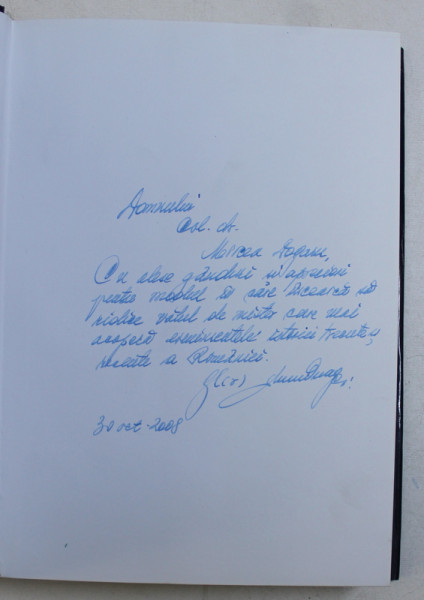 Domnului
Col. dr.
Mircea Dogaru,
Cu alese gânduri și aprecieri
pentru modul în care încearcă să
ridice vălul de mister care mai
acoperă evenimentele istoriei trecute și
recente a României.
Gl(r)
30 oct. 2008